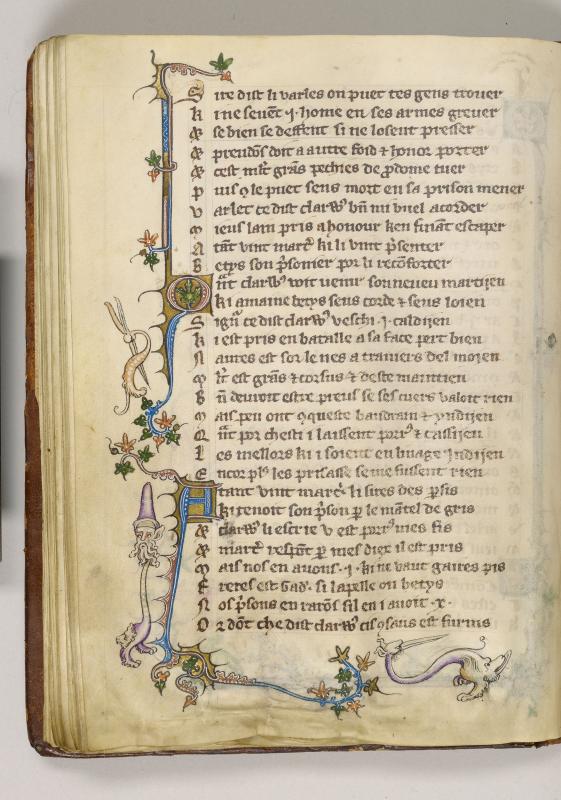 Sire dist li varles on puet tes gens trouer
ki ne seuent .j. home en ses armes greuer
& se bien se deffent si ne losent presser
& prendons doit a autre fois & honor porter
& cest mlt grans pechies de pdome tuer
puis 9 le puet sens mort en sa prison mener
varlet ce dist clarw bn mi vuel acorder
mieus lam pris a honour ken finant escaper
Atant vint marc ki li vint psenter
Betys son psonier por li reconforter
Qnt clarw voit uenir son neueu martijen
ki amaine betys sens corde & sens loien
Sign ce dist clarw veschi .j. caldijen
ki est pris en batalle a sa face pert bien
Naures est sor le nes a trauiers del moien
mlt est grans & corsus & de ste maintien
Bn deuroit estre preus se ses cuers valoit rien
mais peu ont 9queste baudrain & yndijen
Qnt por chesti i laissent porr & cassijen
Les mellors ki i soient en linage Indijen
Encor pls les prisasse se me fussent rien
Atant vint marc li sires des psis
ki tenoit son pson p le mantel de gris
& clarw li escrie v est porr mes fis
& marc respont p mes diex il est pris
mais nos en auons .j. ki ne vaut gaires pis
Freres est Gad. si lapelle on betys
Nos psons en ratons sil en i auoit .x.
Or dont che dist clarw cis 9saus est furnis